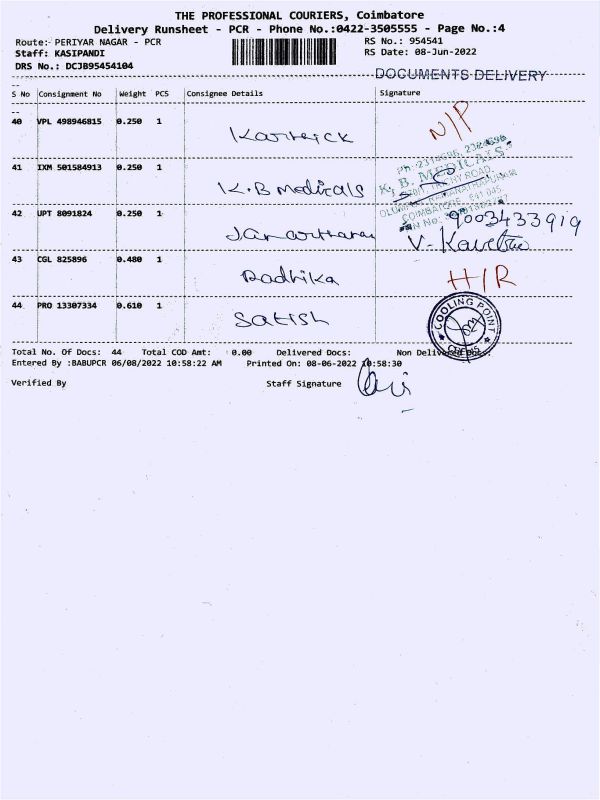 THE PROFESSIONAL COURIERS, Coimbatore
Delivery Runsheet - PCR - Phone No.:0422-3505555 - Page No.:4
Route:- PERIYAR NAGAR - PCR
RS No.: 954541
Staff: KASIPANDI
RS Date: 08-Jun-2022
DRS No.: DCJB95454104
DOCUMENTS DELIVERY
S No Consignment No Weight PCS Consignee Details Signature
40 VPL 498946815 0.250 1 Karthick N/P
Ph: 2314696, 2324696
41 IXM 501584913 0.250 1 K.B Medicals
K. B. MEDICALS
TRICHY ROAD,
COIMBATORE, 641 045
42 UPT 8091824 0.250 1 9003433919
V. Kavitha
43 CGL 825896 0.480 1 Radhika H/R
44 PRO 13307334 0.610 1 Satish
COOLING POINT
Total No. Of Docs: 44 Total COD Amt: 0.00 Delivered Docs: Non Delivered Docs:
Entered By :BABUPCR 06/08/2022 10:58:22 AM Printed On: 08-06-2022 10:58:30
Verified By Staff Signature